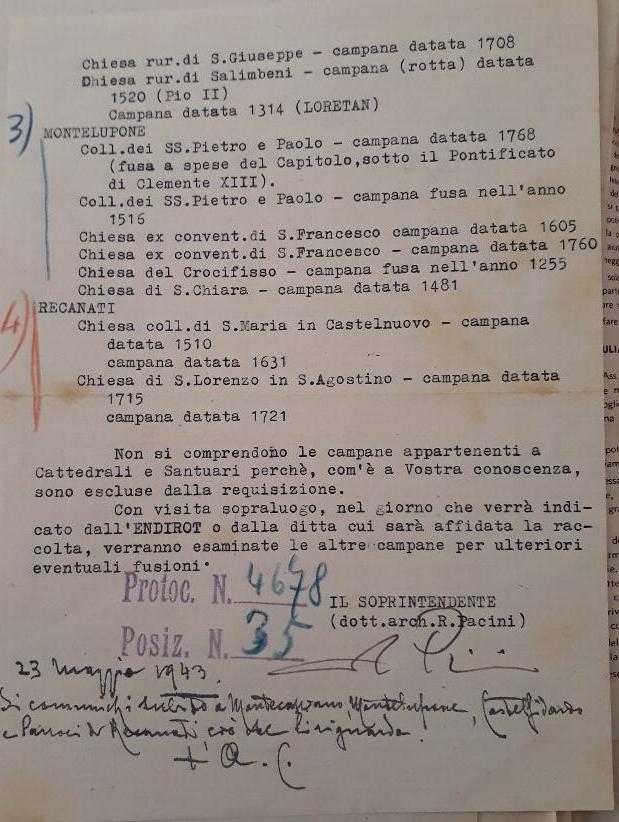 Chiesa rur.di S.Giuseppe - campana datata 1708
Dhiesa rur.di Salimbeni - campana (rotta) datata
1520 (Pio II)
Campana datata 1314 (LORETAN)
3) MONTELUPONE
Coll.dei SS.Pietro e Paolo - campana datata 1768
(fusa a spese del Capitolo,sotto il Pontificato
di Clemente XIII).
Coll.dei SS.Pietro e Paolo - campana fusa nell'anno
1516
Chiesa ex convent.di S.Francesco campana datata 1605
Chiesa ex convent.di S.Francesco - campana datata 1760
Chiesa del Crocifisso - campana fusa nell'anno 1255
Chiesa di S.Chiara - campana datata 1481
4) RECANATI
Chiesa coll.di S.Maria in Castelnuovo - campana
datata 1510
campana datata 1631
Chiesa di S.Lorenzo in S.Agostino - campana datata
1715
campana datata 1721
Non si comprendono le campane appartenenti a
Cattedrali e Santuari perchè, com'è a Vostra conoscenza,
sono escluse dalla requisizione.
Con visita sopraluogo, nel giorno che verrà indi-
cato dall'ENDIROT o dalla ditta cui sarà affidata la rac-
colta, verranno esaminate le altre campane per ulteriori
eventuali fusioni.
Protoc. N. 4678
IL SOPRINTENDENTE
(dott.arch.R.Pacini)
Posiz. N. 35
23 Maggio 1943.
Si comunichi subito a Montecassiano, Montelupone, Castelfidardo
e Parroci di Recanati, ciò che li riguarda.